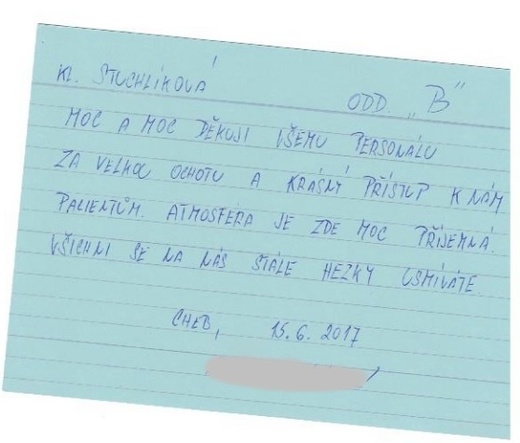 KL. STUCHLÍKOVÁ
ODD „B"
MOC A MOC DĚKUJI VŠEMU PERSONÁLU
ZA VELKOU OCHOTU A KRÁSNÝ PŘÍSTUP K NÁM
PACIENTŮM. ATMOSFÉRA JE ZDE MOC PŘÍJEMNÁ.
VŠICHNI SE NA NÁS STÁLE HEZKY USMÍVÁTE.
CHEB, 15.6.2017